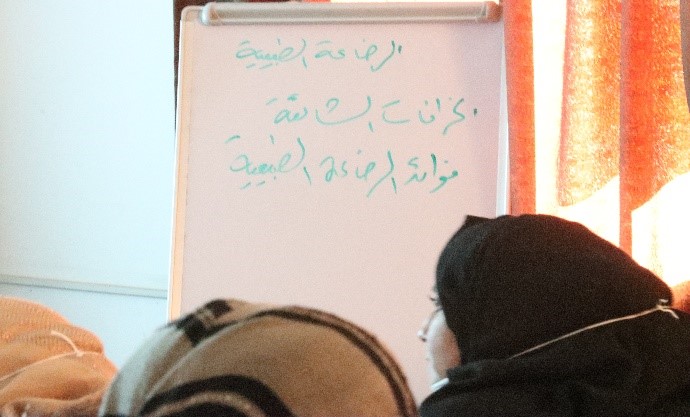 الرضاعة الطبيعية
الخرافات الشائعة
فوائد الرضاعة الطبيعية